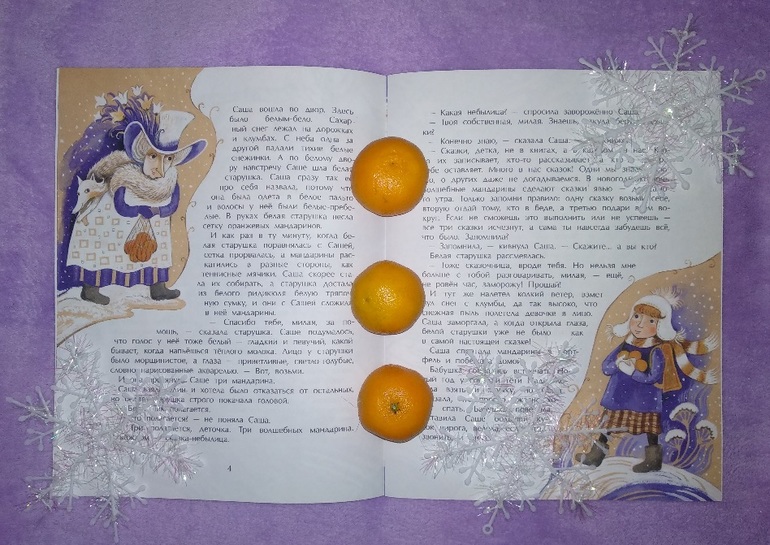 Саша вошла во двор. Здесь
было белым-бело. Сахар-
ный снег лежал на дорожках
и клумбах. С неба одна за
другой падали тихие белые
снежинки. А по белому дво-
ру навстречу Саше шла белая
старушка. Саша сразу так её
про себя назвала, потому что
она была одета в белое пальто
и волосы у неё были белые-пребе-
лые. В руках белая старушка несла
сетку оранжевых мандаринов.
И как раз в ту минуту, когда бе-
лая старушка поравнялась с Сашей,
сетка прорвалась, и мандарины рас-
катились в разные стороны, как
теннисные мячики. Саша скорее ста-
ла их собирать, а старушка достала
из белого ридикюля белую тряпич-
ную сумку, и они с Сашей сложили
в неё мандарины.
— Спасибо тебе, милая, за по-
мощь, — сказала старушка. Саше подумалось,
что голос у неё тоже белый — гладкий и певучий, какой
бывает, когда напьёшься тёплого молока. Лицо у старушки
было морщинистое, а глаза — приветливые, светло-голубые,
словно нарисованные акварелью. — Вот, возьми.
И она протянула Саше три мандарина.
Саша смутилась и хотела было отказаться от остальных,
но старушка строго покачала головой.
полагается.
— Что полагается? — не поняла Саша.
— Три полагается, деточка. Три волшебных мандарина.
сказка-небылица.
4
— Какая небылица? — спросила заворожённо Саша.
— Твоя собственная, милая. Знаешь, откуда берутся
ки?
— Конечно знаю, — сказала Саша.
— Сказки, детка, не в книгах, а
их записывает, кто-то рассказывает, а
себе оставляет. Много в нас сказок! Одни мы знаем
о других даже не догадываемся. В новогоднюю
волшебные мандарины сделают сказки явью
утра. Только запомни правило: одну сказку возьми себе,
вторую отдай тому, кто в беде, а третью подари в м во-
круг. Если не сможешь это выполнить или не успеешь —
все три сказки исчезнут, а сама ты навсегда забудешь всё,
что было. Запомнила?
— Запомнила, — кивнула Саша. — Скажите... а вы кто?
Белая старушка рассмеялась.
— Тоже сказочница, вроде тебя. Но нельзя мне
больше с тобой разговаривать, милая, — ещё,
не ровён час, заморожу! Прощай!
И тут же налетел колкий ветер, взмет
снег с клумбы, да так высоко, что
снежная пыль полетела девочке в лицо.
Саша заморгала, а когда открыла глаза,
белой старушки уже не было — как
в самой настоящей сказке!
Саша спрятала мандарины в порт-
фель и побежала домой.
Бабушка
год
спать.
Саше